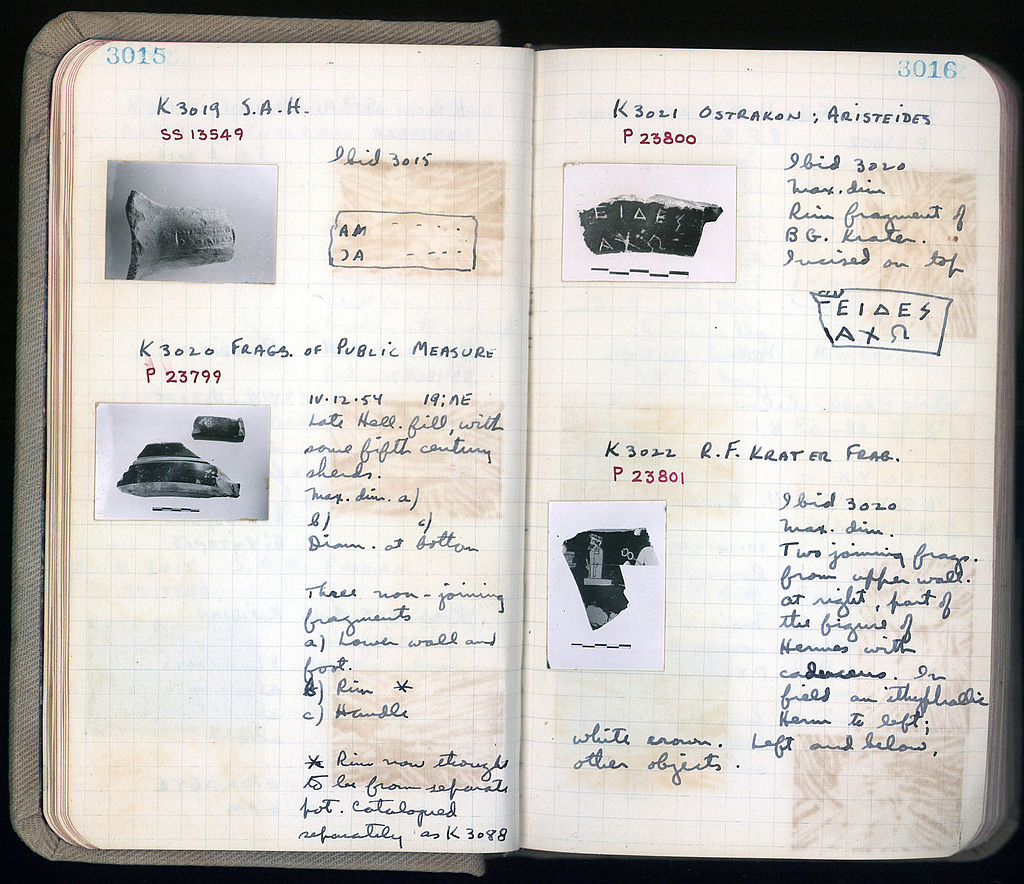 3015
K 3019 S.A.H.
SS 13549
Ibid 3015
AM - - - -
ƆA - - - -
K 3020 FRAGS. OF PUBLIC MEASURE
P 23799
IV·12·54 19; ΛΕ
Late Hell. fill, with
some fifth century
sherds.
Max. dim. a)
b) c)
Diam. at bottom
Three non-joining
fragments
a) Lower wall and
foot.
b) Rim *
c) Handle
* Rim now thought
to be from separate
pot. Catalogued
separately as K 3088
3016
K 3021 OSTRAKON; ARISTEIDES
P 23800
ΕΙΔΕΣ
ΑΧΩ
Ibid 3020
Max. dim
Rim fragment of
B.G. Krater.
Incised on top
ΕΙΔΕΣ
ΑΧΩ
K 3022 R.F. KRATER FRAG.
P 23801
Ibid 3020
Max. dim.
Two joining frags.
from upper wall.
at right, part of
the figure of
Hermes with
caduceus. In
field an ithyphallic
Herm to left;
white crown. Left and below,
other objects.